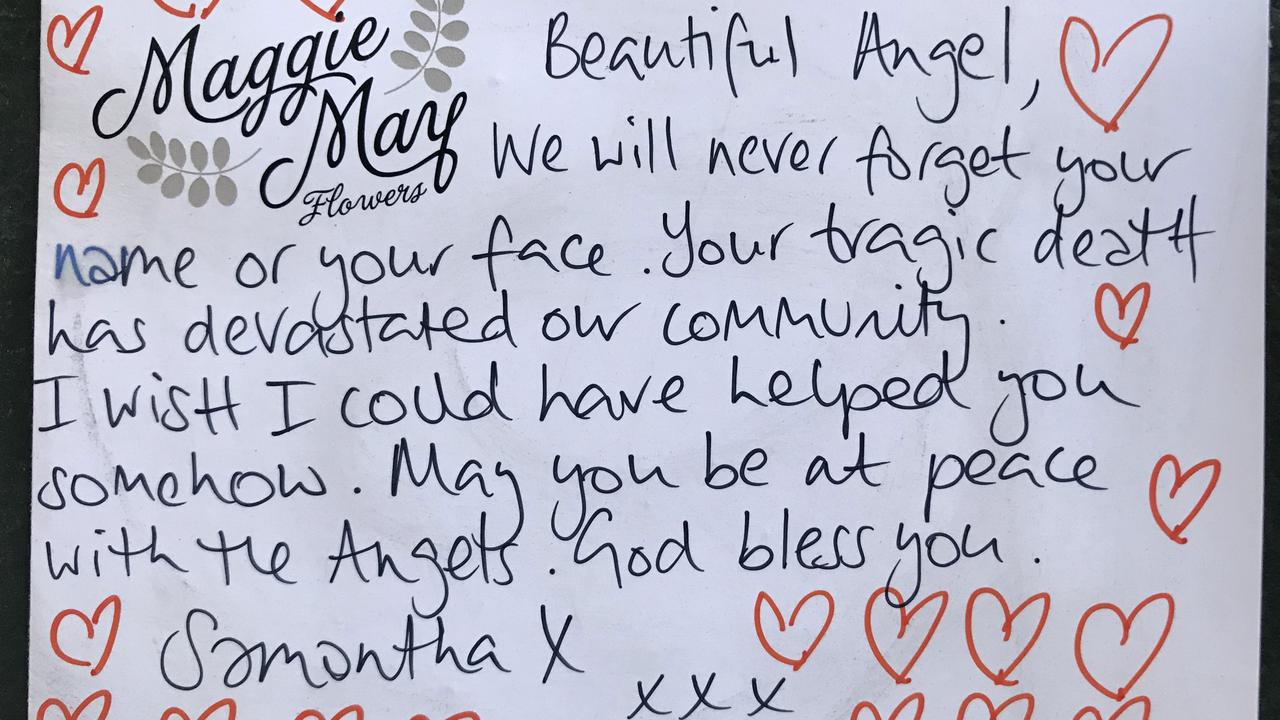 Maggie
May
Flowers
Beautiful Angel,
We will never forget your
name or your face. Your tragic death
has devastated our community.
I wish I could have helped you
somehow. May you be at peace
with the Angels. God bless you.
Samantha X
x x x